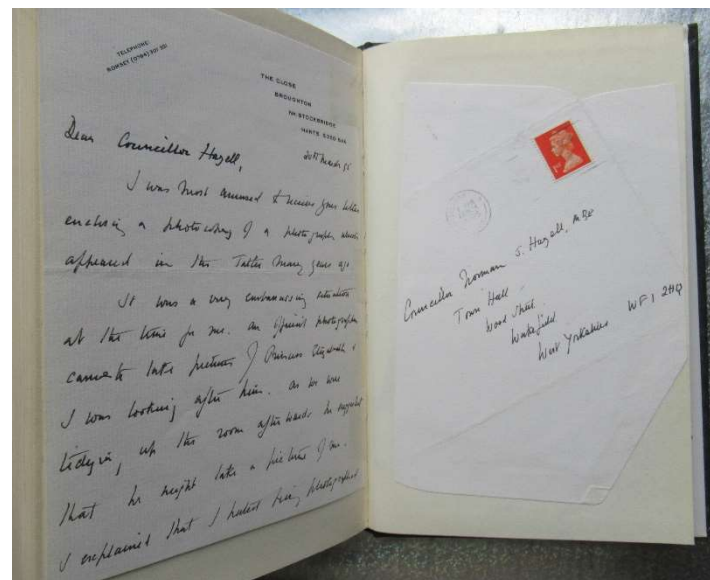 TELEPHONE:
ROMSEY (0794) 301
THE CLOSE
BROUGHTON
NR. STOCKBRIDGE
HANTS
Dear Councillor Hazell,
20th March 95
I was most amused to receive your letter
enclosing a photocopy of a photograph which
appeared in the Tatler many years ago.
It was a very embarrassing situation
at the time for me. An official photographer
came to take pictures of Princess Elizabeth &
I was looking after him. As we were
tidying up the room afterwards he suggested
that he might take a picture of me.
I explained that I hated being photographed
1st
Councillor Norman S. Hazell, MBE
Town Hall
Wood Street
Wakefield
West Yorkshire WF1 2HQ